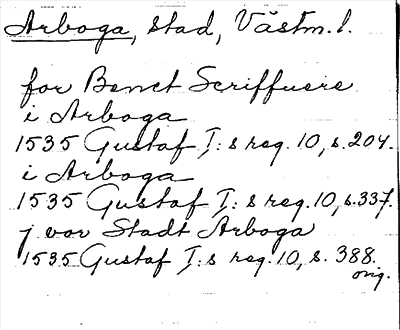 Arboga, stad, Västm. l.
for Benct Scriffuere
i Arboga
1535 Gustaf I:s reg. 10, s. 204.
i Arboga
1535 Gustaf I:s reg. 10, s. 337.
j vor Stadt Arboga
1535 Gustaf I:s reg. 10, s. 388.
orig.